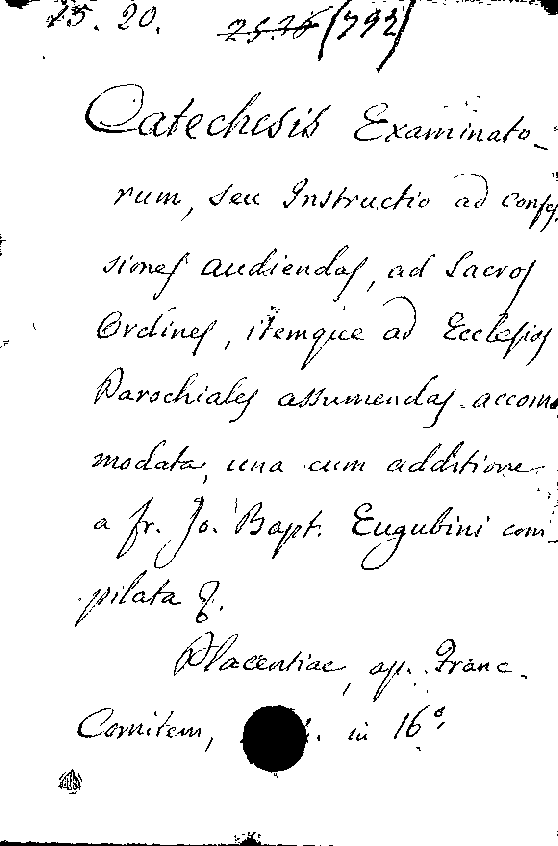 15. 20. 2536 (792)
Catechesis Examinato-
rum, seu Instructio ad confes
siones audiendas, ad Sacros
Ordines, itemque ad Ecclesias
Parochiales assumendas accom
modata, una cum additione
a fr. Jo. Bapt. Eugubini com-
pilata
Placentiae, ap. Franc.
Comitem, in 16°.